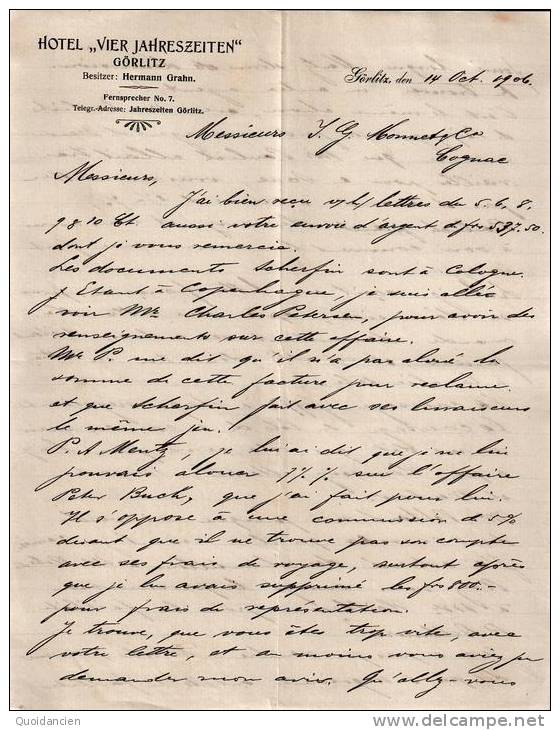 HOTEL „VIER JAHRESZEITEN"
GÖRLITZ
Besitzer: Hermann Grahn.
Fernsprecher No. 7.
Telegr.-Adresse: Jahreszeiten Görlitz.
Görlitz, den 14 Oct. 1906.
Messieurs J. G. Monnet & Co
Cognac
Messieurs,
J'ai bien reçu lettres du 5. 6. 8.
9 & 10 Ct aussi votre envoie d'argent d. frs 597.50.
dont je vous remercie.
Les documents Scherfin sont à Cologne.
Etant à Copenhague, je suis allé
voir Mr. Charles Petersen, pour avoir des
renseignements sur cette affaire.
Mr P. me dit qu'il n'a pas aloué la
somme de cette facture pour reclame
et que Scherfin fait avec ses livraiseurs
le même jeu.
P. A Mentz, je lui ai dit que je ne lui
pouvais alouer % sur l'affaire
Peter Buch, que j'ai fait pour lui.
Il s'oppose à une commission de 5%
disant que il ne trouve pas son compte
avec ses frais de voyage, surtout après
que je lui avais supprimé les frs 800.-
pour frais de representation.
Je trouve, que vous êtes trop vite, avec
votre lettre, et au moins vous aviez pu
demander mon avis. Qu'allez-vous
Quoidancien
delcampe.net